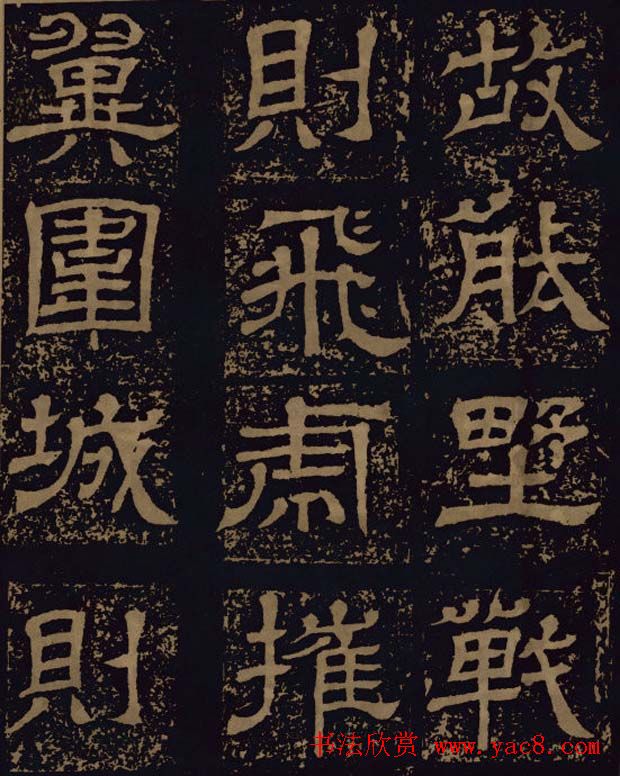 故能野戰
則飛虎摧
翼圍城則
书法欣赏 www.yac8.com